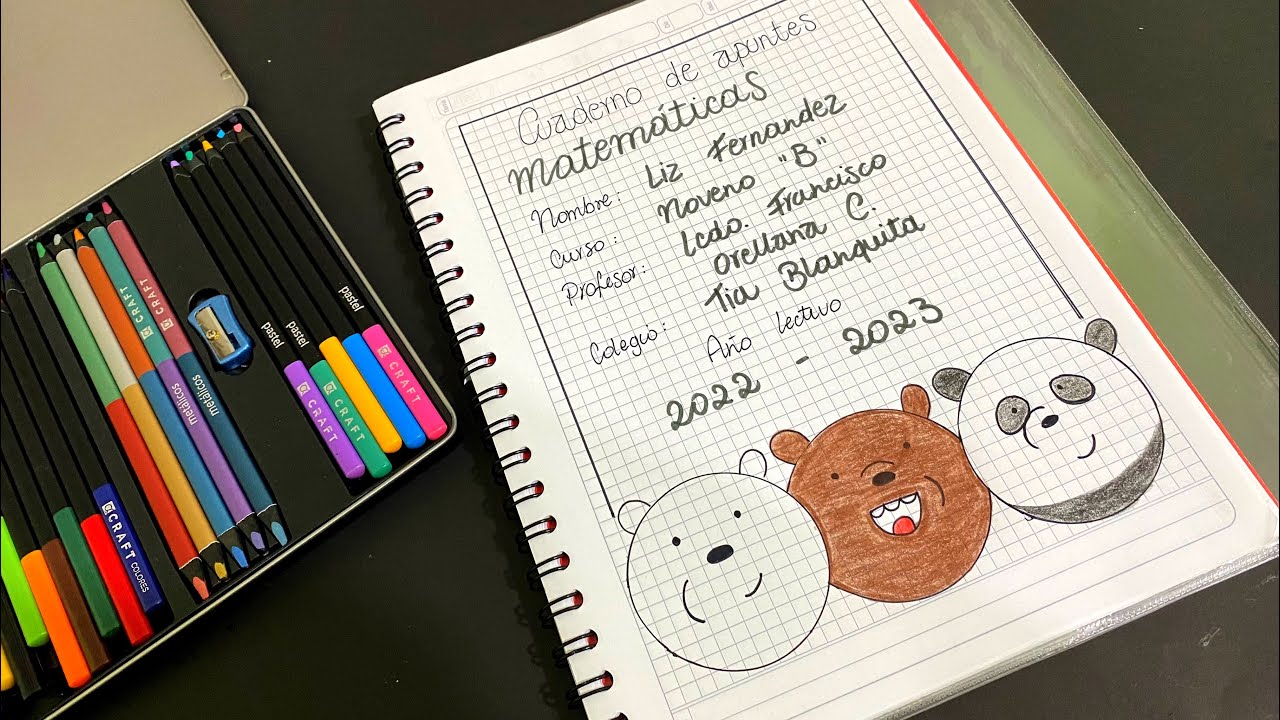 Cuaderno de apuntes
matemáticas
Nombre: Liz Fernandez
Curso: Noveno "B"
Profesor: Lcdo. Francisco
Orellana C.
Colegio: Tia Blanquita
Año lectivo
2022 - 2023
pastel
pastel
pastel
CRAFT
CRAFT
CRAFT
CRAFT
CRAFT
metálicos
metálicos
CRAFT COLORES